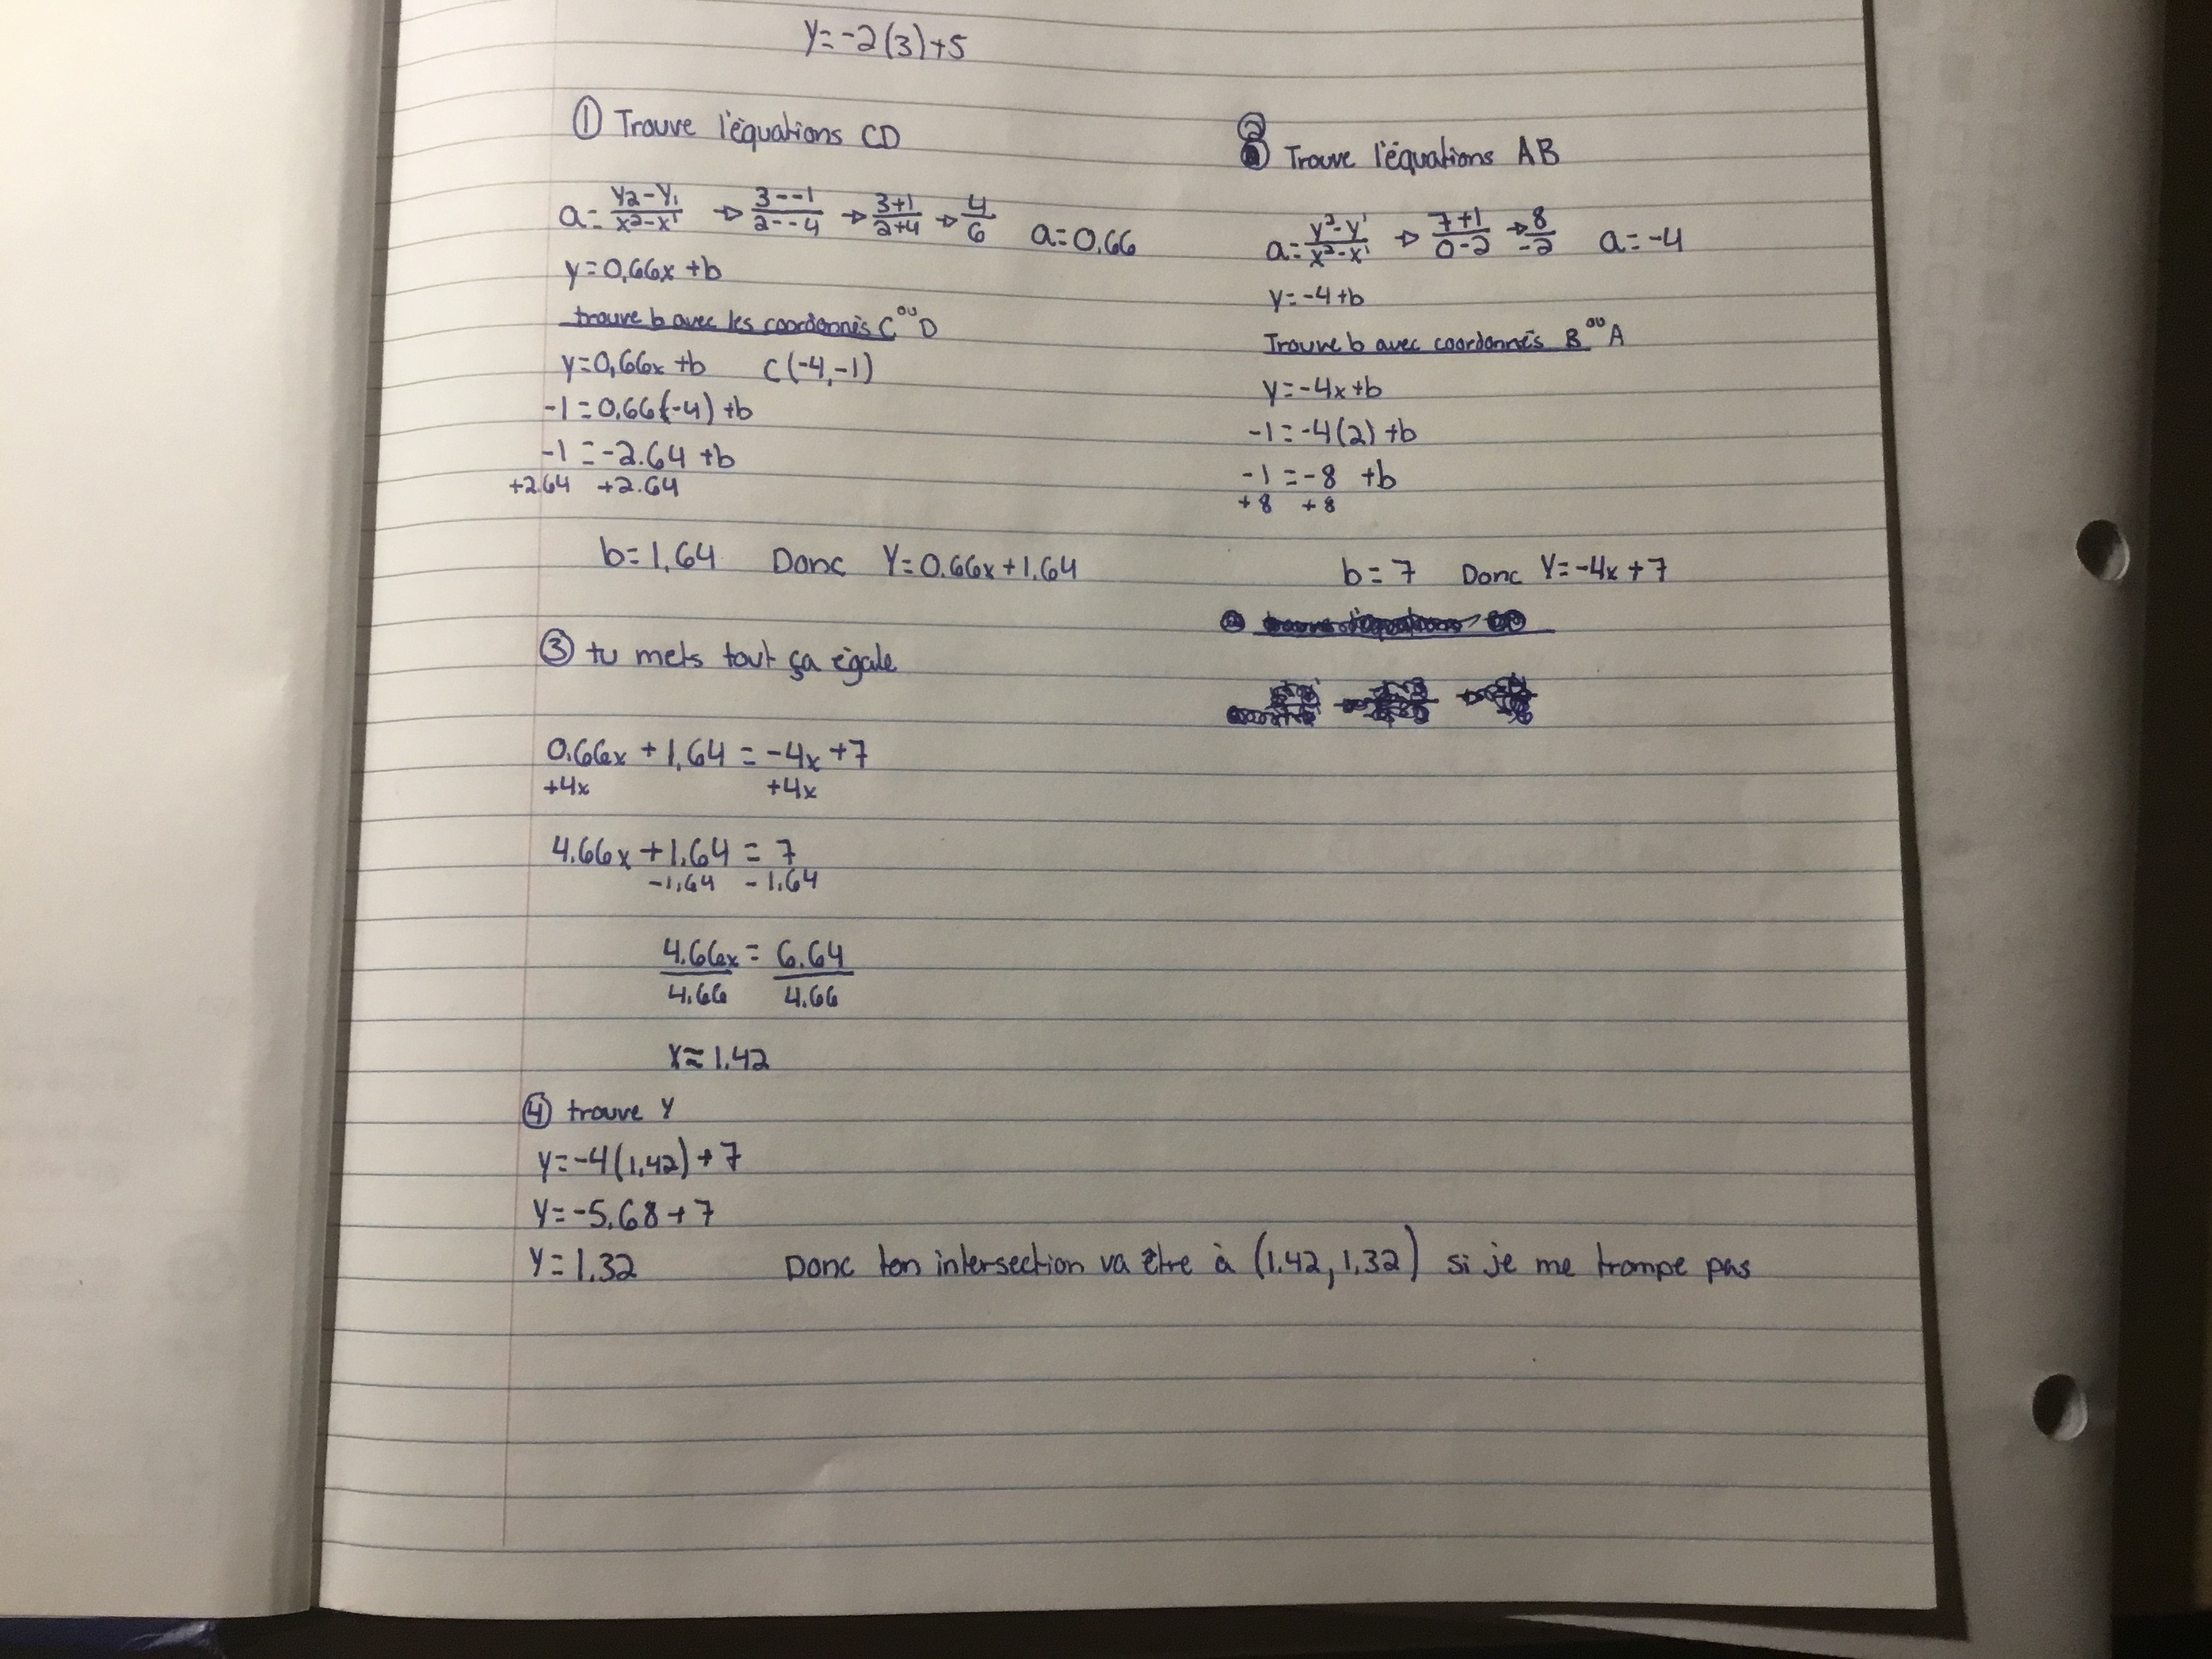 y=-2(3)+5
① Trouve l'équations CD
a= y2-y1/x2-x1 → 3--1/2--4 → 3+1/2+4 → 4/6 a=0.66
y=0,66x+b
trouve b avec les coordonnés C ou D
y=0,66x+b C(-4,-1)
-1=0.66(-4)+b
-1=-2.64+b
+2.64 +2.64
b=1,64 Donc Y=0.66x+1.64
② Trouve l'équations AB
a= y2-y1/x2-x1 → 7+1/0-2 → 8/-2 a=-4
y=-4+b
Trouve b avec coordonnés B ou A
y=-4x+b
-1=-4(2)+b
-1=-8 +b
+8 +8
b=7 Donc Y=-4x+7
③ tu mets tout ça égale
0.66x+1,64=-4x+7
+4x +4x
4.66x+1.64=7
-1,64 -1.64
4.66x/4.66 = 6.64/4.66
x≈1.42
④ trouve y
y=-4(1,42)+7
y=-5.68+7
Y=1.32 Donc ton intersection va être à (1.42, 1.32) si je me trompe pas